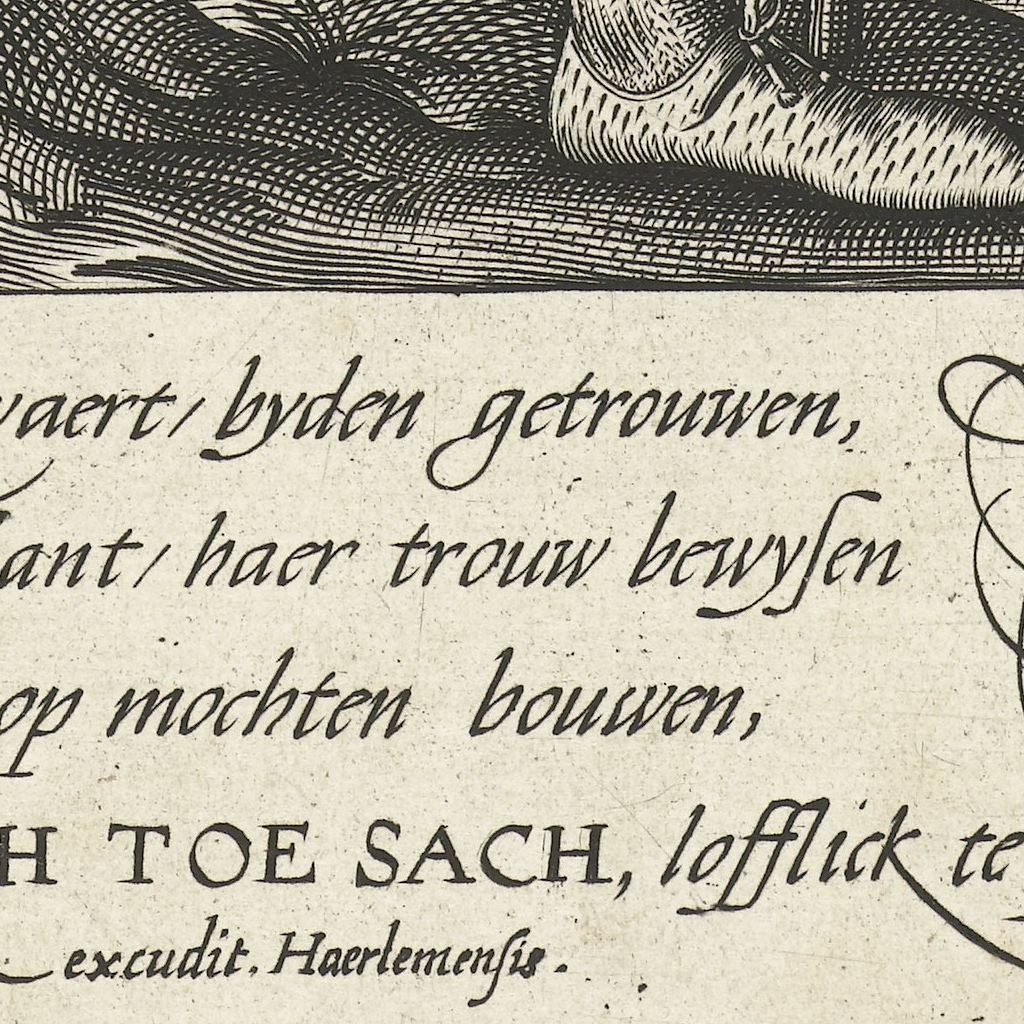 vaert/ byden getrouwen,
lant/ haer trouw bewyſen
op mochten bouwen,
H TOE SACH, lofflick te
excudit. Haerlemenſis.